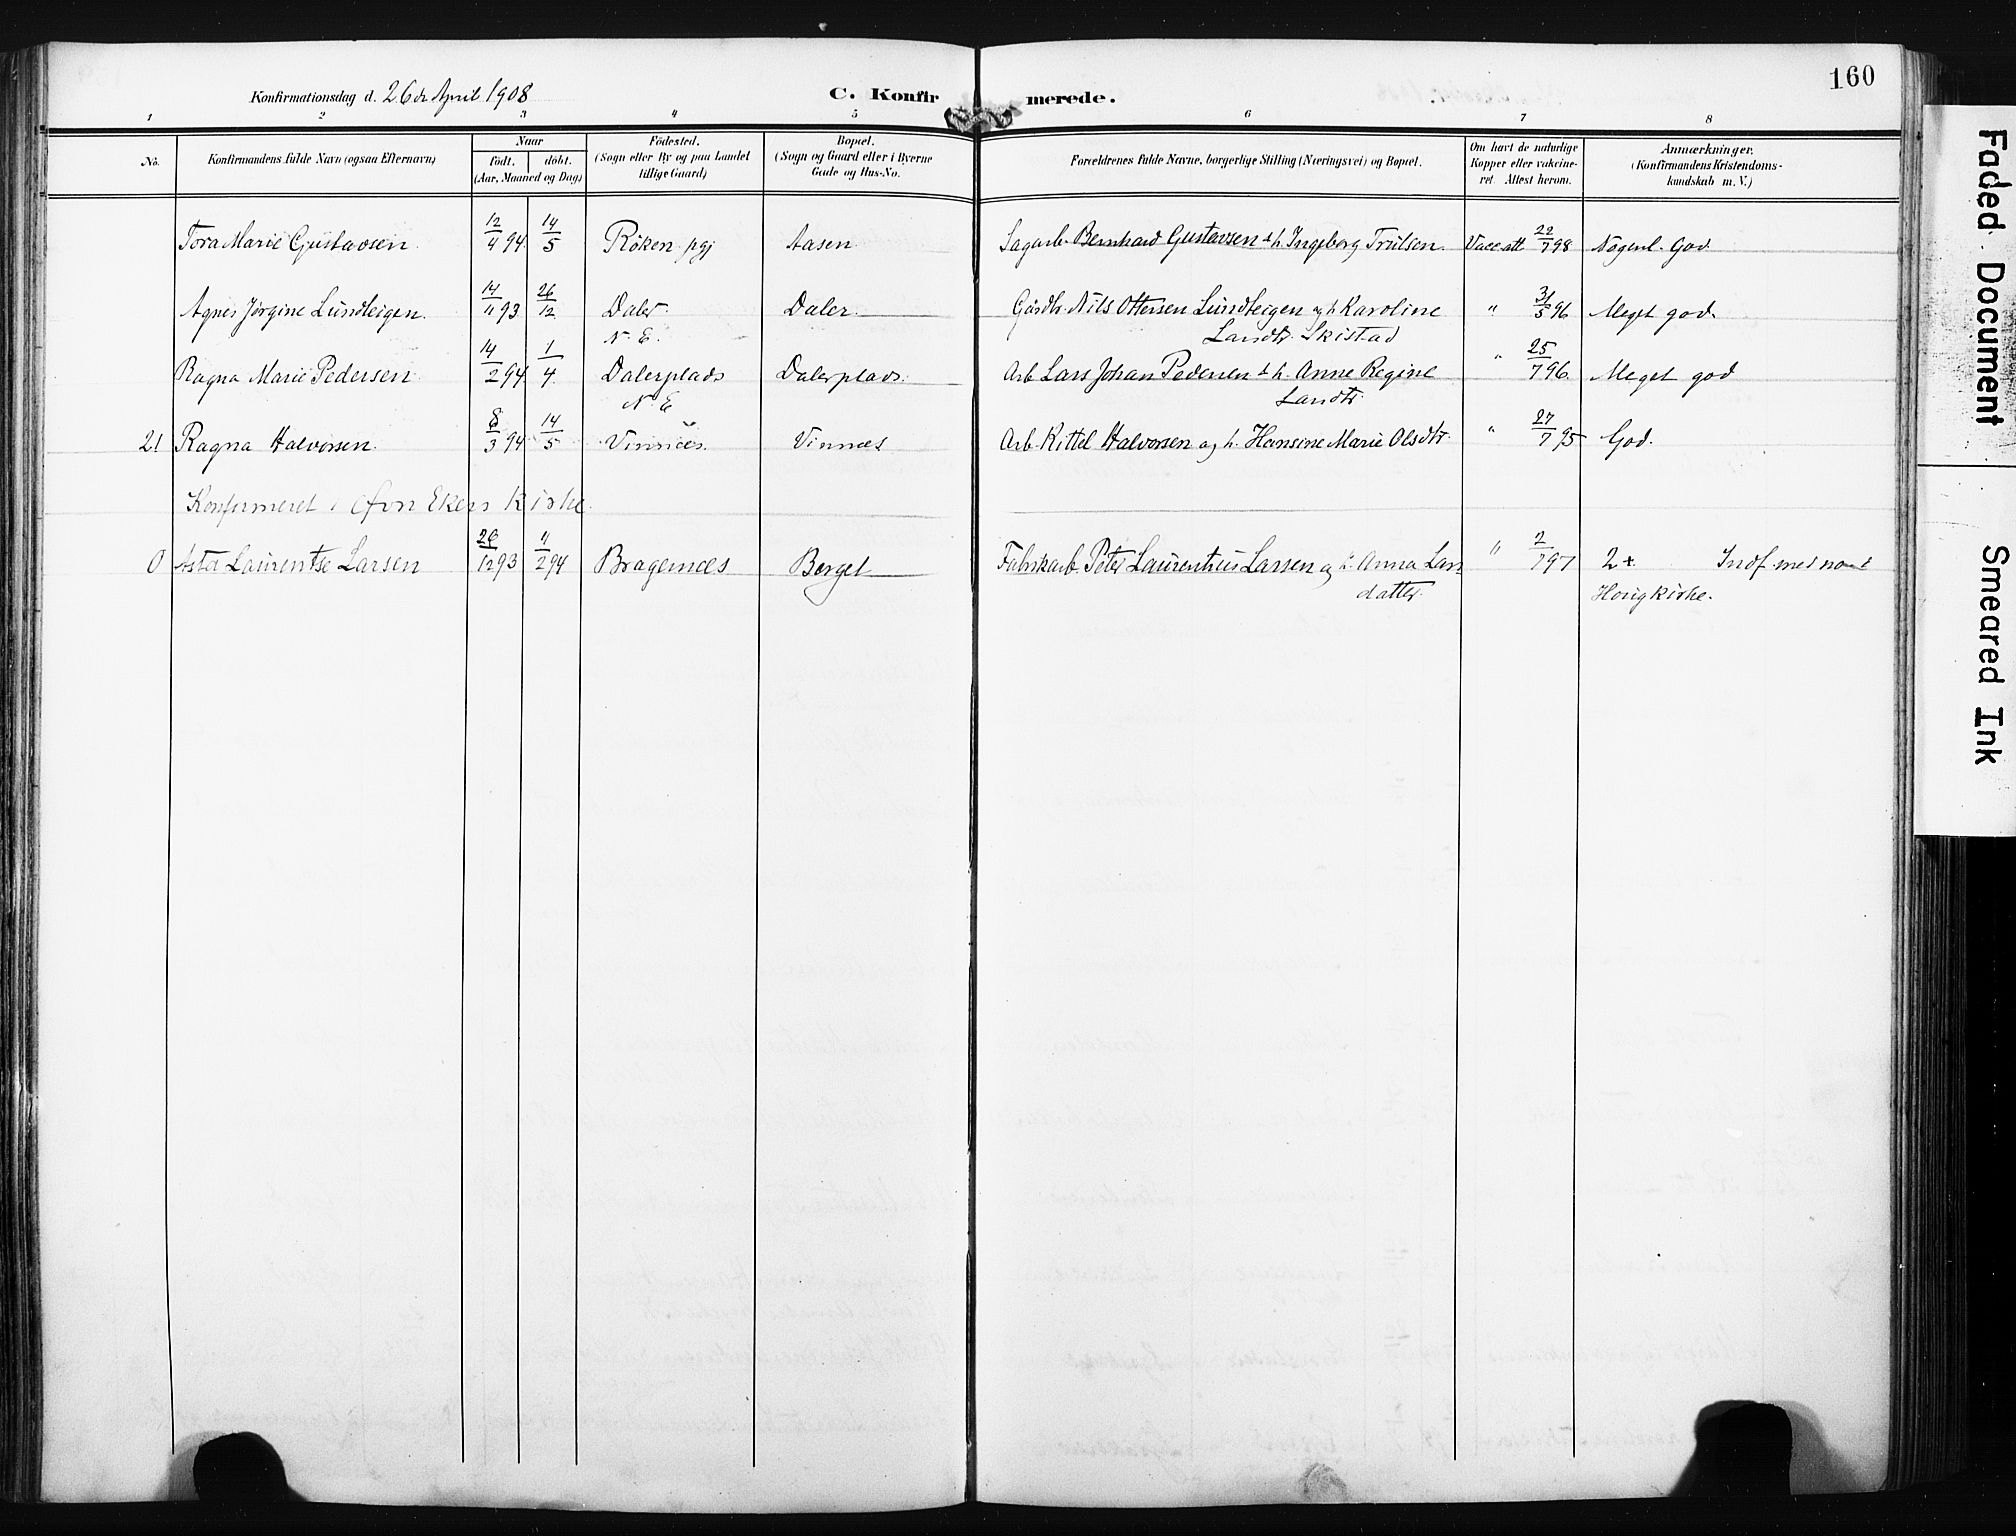 160
Konfirmationsdag d. 26de April 1908
C. Konfirmerede.
1 2 3 4 5 6 7 8
No.
Konfirmandens fulde Navn (ogsaa Efternavn)
Naar
födt. döbt.
(Aar, Maaned og Dag)
Födested.
(Sogn eller By og paa Landet
tillige Gaard)
Bopæl.
(Sogn og Gaard eller i Byerne
Gade og Hus-No.
Forældrenes fulde Navne, borgerlige Stilling (Næringsvei) og Bopæl.
Om havt de naturlige
Kopper eller vakcine-
ret. Attest herom.
Anmærkninger.
(Konfirmandens Kristendoms-
kundskab m. V.)
Tora Marie Gustavsen 12/4 94 14/5 Röken pgj Aasen Sagarb. Bernhard Gustavsen & h. Ingeborg Trulsen. Vacc att 22/7 98 Nogenl. God
Agnes Jørgine Lundteigen. 14/11 93 26/12 Daler Daler Gårdbr. Nils Ottersen Lundteigen og h Karoline " 31/5 96 Meget god.
N. E. Landtr. Skistad
Ragna Marie Pedersen 14/2 94 1/4 Dalerplads Dalerplads. Arb. Lars Johan Pedersen & h. Anne Regine " 25/7 96 Meget god
N. E Landtr.
21 Ragna Halvorsen. 8/3 94 14/5 Vinnæs. Vinnæs Arb. Kittel Halvorsen og h. Hansine Marie Olsdtr. " 27/7 95 God.
Konfirmeret i Øvre Ekers Kirke.
0 Asta Laurentse Larsen 26/12 93 11/2 94 Bragernæs Berget Fabrikarb. Peter Laurentius Larsen og h. Anna Lars " 2/7 97 2+ Indf. med
datter. Hougkirke.
Faded Document
Smeared Ink